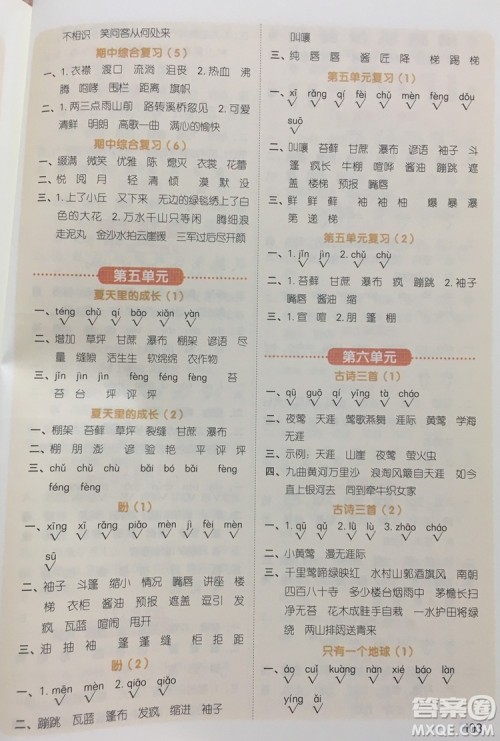 不相识 笑问客从何处来
期中综合复习（5）
一、1. 衣襟 渡口 流淌 沮丧 2. 热血 沸
腾 咆哮 围栏 庄严 旗帜
二、1. 两三点雨山前 路转溪桥忽见 2. 蓬勃
清鲜 明朗 高歌一曲 满心的愉快
期中综合复习（6）
一、缀满 微笑 优雅 陈 熄灭 花萼 花蕾
二、悦 阅 月 轻 清 倾 漠 默 没
三、1. 上了小丘 又下来 无边的绿毯绣上了白
色的大花 2. 万水千山只等闲 腾细浪
走泥丸 金沙水拍云崖暖 三军过后尽开颜
第五单元
夏天里的成长（1）
一、téng chù qí bāo xiān yàn
二、增加 草坪 苔藓 瀑布 棚架 谚语 尽量
缝隙 活生生 软绵绵 农作物
三、jǐn jìn jìn fèng féng fèng 苔
苔 台 坪 评 评
夏天里的成长（2）
一、棚架 苔藓 草坪 裂缝 甘蔗 瀑布
二、棚 朋 膨 谚 验 艳 平 评 坪
三、chǔ chù chù bāi bó bāi féng
fèng fèng
盼（1）
一、xīng xī rǎng piào mèn jì fèi mèn
sǔ
二、袖子 斗篷 缩小 情况 嘴唇 讲座 楼
梯 衣柜 酱油 遮盖 逗引 发
疯 瓦蓝 喧闹 甩开
三、油 抽 柚 蓬 篷 缝 柜 拒 距
盼（2）
一、1. mēn mèn 2. qiāo qiǎo
二、蹦跳 瓦蓝 篷布 发疯 缩进 袖子
叫嚷
三、纯 唇 唇 酱 匠 降 梯 踢 梯
第五单元复习（1）
一、xī rǎng qí féi jì mèn fèng dǒu
sū
二、叫嚷 苔藓 甘蔗 瀑布 谚语 酱油 裂缝
疯长 牛棚 喧哗 酱油 蹦跳 遮
盖 楼梯 预报 嘴唇
三、鲜 鲜 鲜 袖 油 柚 爆 暴 瀑
第 递 梯
第五单元复习（2）
一、1. jǐn jìn 2. chǔ chù
二、1. 苔藓 甘蔗 瀑布 疯 蹦跳 2. 袖子
嘴唇 酱油 缩
三、1. 宣 喧 2. 朋 蓬 棚
第六单元
古诗三首（1）
一、qǔ guō qǔ yí yíng cù
二、夜莺 天涯 莺歌燕舞 涯 涯际
三、示例：天涯 山崖 夜莺 萤火虫
四、九曲黄河万里沙 浪淘风簸自天涯 如今
直上银河去 同到牵牛织女家
古诗三首（2）
一、1. qǔ qū 2. guō guó cháo
二、小黄莺 漫无涯际
三、千里莺啼绿映红 水村山郭酒旗风 南朝
四百八十寺 多少楼台烟雨中 茅檐长扫
净无苔 花木成畦手自栽 一水护田将绿
绕 两山排闼送青来
只有一个地球（1）
一、áo cuǐ kuàng nàn xiàn yíng
yíng ài
答案圈
MXQE.COM